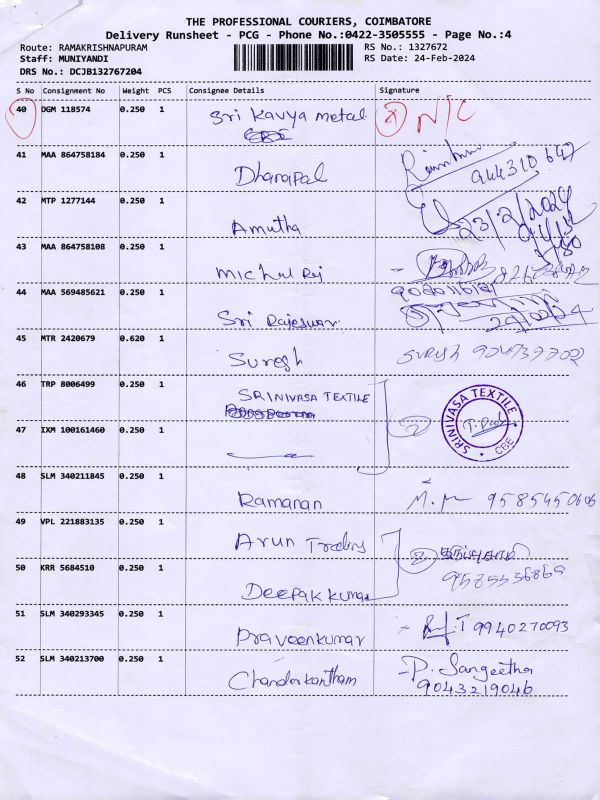 THE PROFESSIONAL COURIERS, COIMBATORE
Delivery Runsheet - PCG - Phone No.:0422-3505555 - Page No.:4
Route: RAMAKRISHNAPURAM RS No.: 1327672
Staff: MUNIYANDI RS Date: 24-Feb-2024
DRS No.: DCJB132767204
S No Consignment No Weight PCS Consignee Details Signature
40 DGM 118574 0.250 1 Sri Kavya metal N/C
41 MAA 864758184 0.250 1 Dharapal
42 MTP 1277144 0.250 1 Amutha 23/2/2024
43 MAA 864758108 0.250 1 Michul Raj
44 MAA 569485621 0.250 1 Sri Rajeswari
45 MTR 2420679 0.620 1 Suresh Suresh
46 TRP 8006499 0.250 1 SRINIVASA TEXTILE
SRINIVASA TEXTILE CBE
47 IXM 100161460 0.250 1
48 SLM 340211845 0.250 1 Ramanan 9585450606
49 VPL 221883135 0.250 1 Arun Traders
50 KRR 5684510 0.250 1 Deepak kumar 9585536869
51 SLM 340293345 0.250 1 Praveenkumar 9940270093
52 SLM 340213700 0.250 1 Chandrakantham P. Sangeetha
9043219046